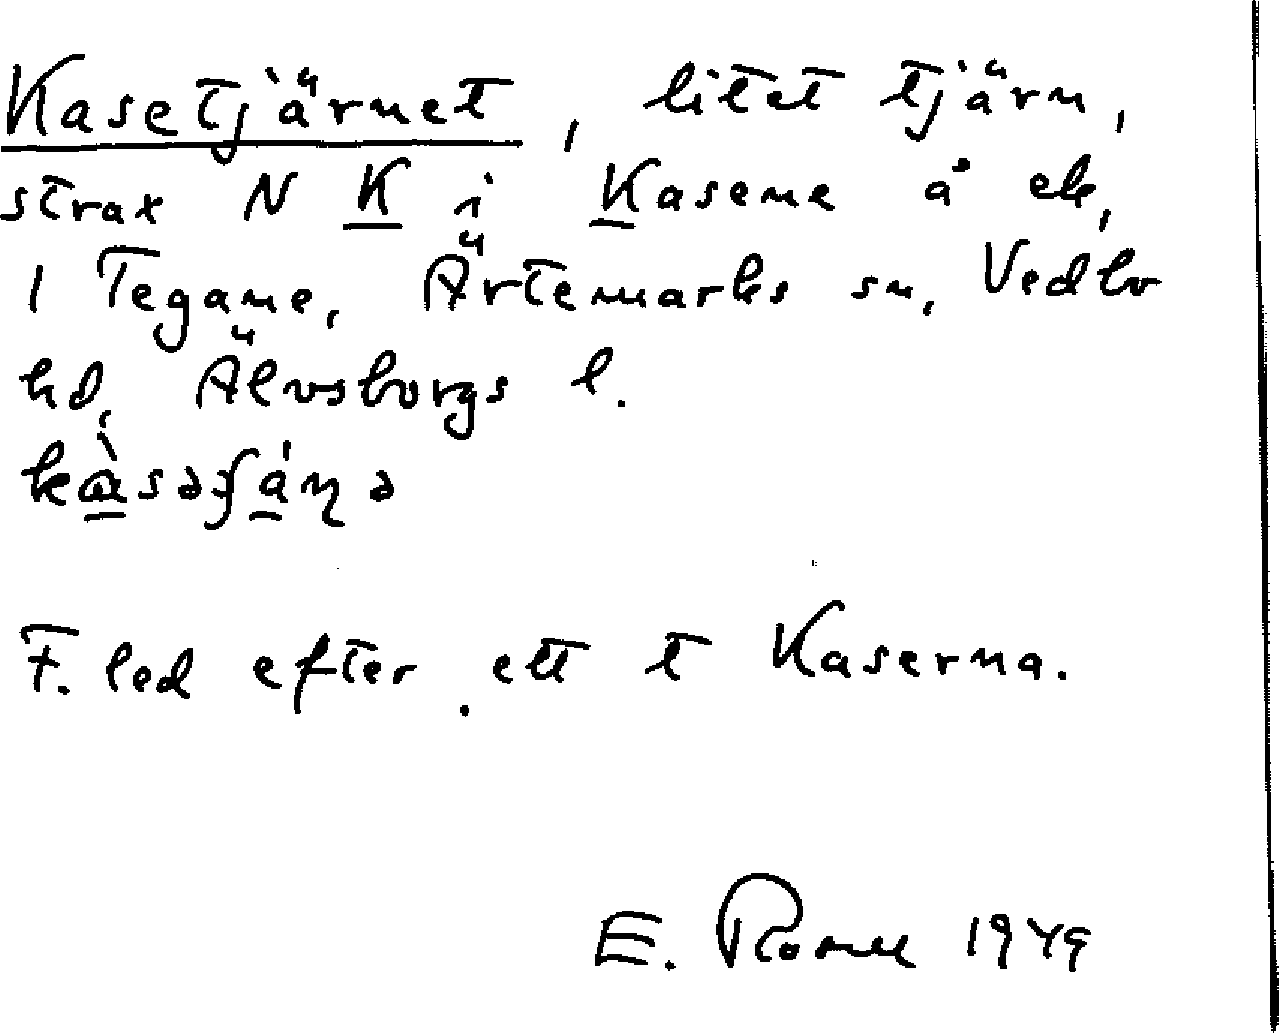 Kasetjärnet, litet tjärn,
strax N K i Kasene å ek,
1 Tegane, Ärtemarks sn, Vedbo
hd, Älvsborgs l.
F. led efter ett t Kaserna.
E. 1949